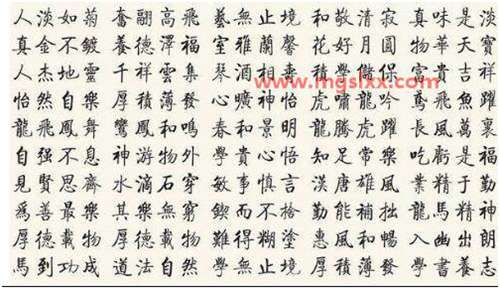 人淡如菊 奮翮高飛 藝無止境 和敬清寂 真味是淡
真金不鍍 養德澤福 室雅蘭馨 花好月圓 物華天寶
人杰地靈 千祥雲集 琴酒相壽 積學儲 富貴吉祥
www.mgslxx.com
怡然自樂 厚積薄發 心曠神怡 虎嘯龍吟 鳶飛魚躍
龍飛鳳舞 鸞鳳和鳴 春和景明 龍騰虎躍 長風萬裏
自强不息 神游物外 學貴心悟 知足常樂 吃虧是福
見賢思齊 水滴石穿 敏事慎言 漢唐雄風 業精于勤
爲善最樂 其樂無窮 鍥而不捨 勤能補拙 龍馬精神
厚德載物 厚德載物 難得糊塗 惠風和暢 入幽出朗
馬到功成 道法自然 學無止境 厚積薄發 學書養志